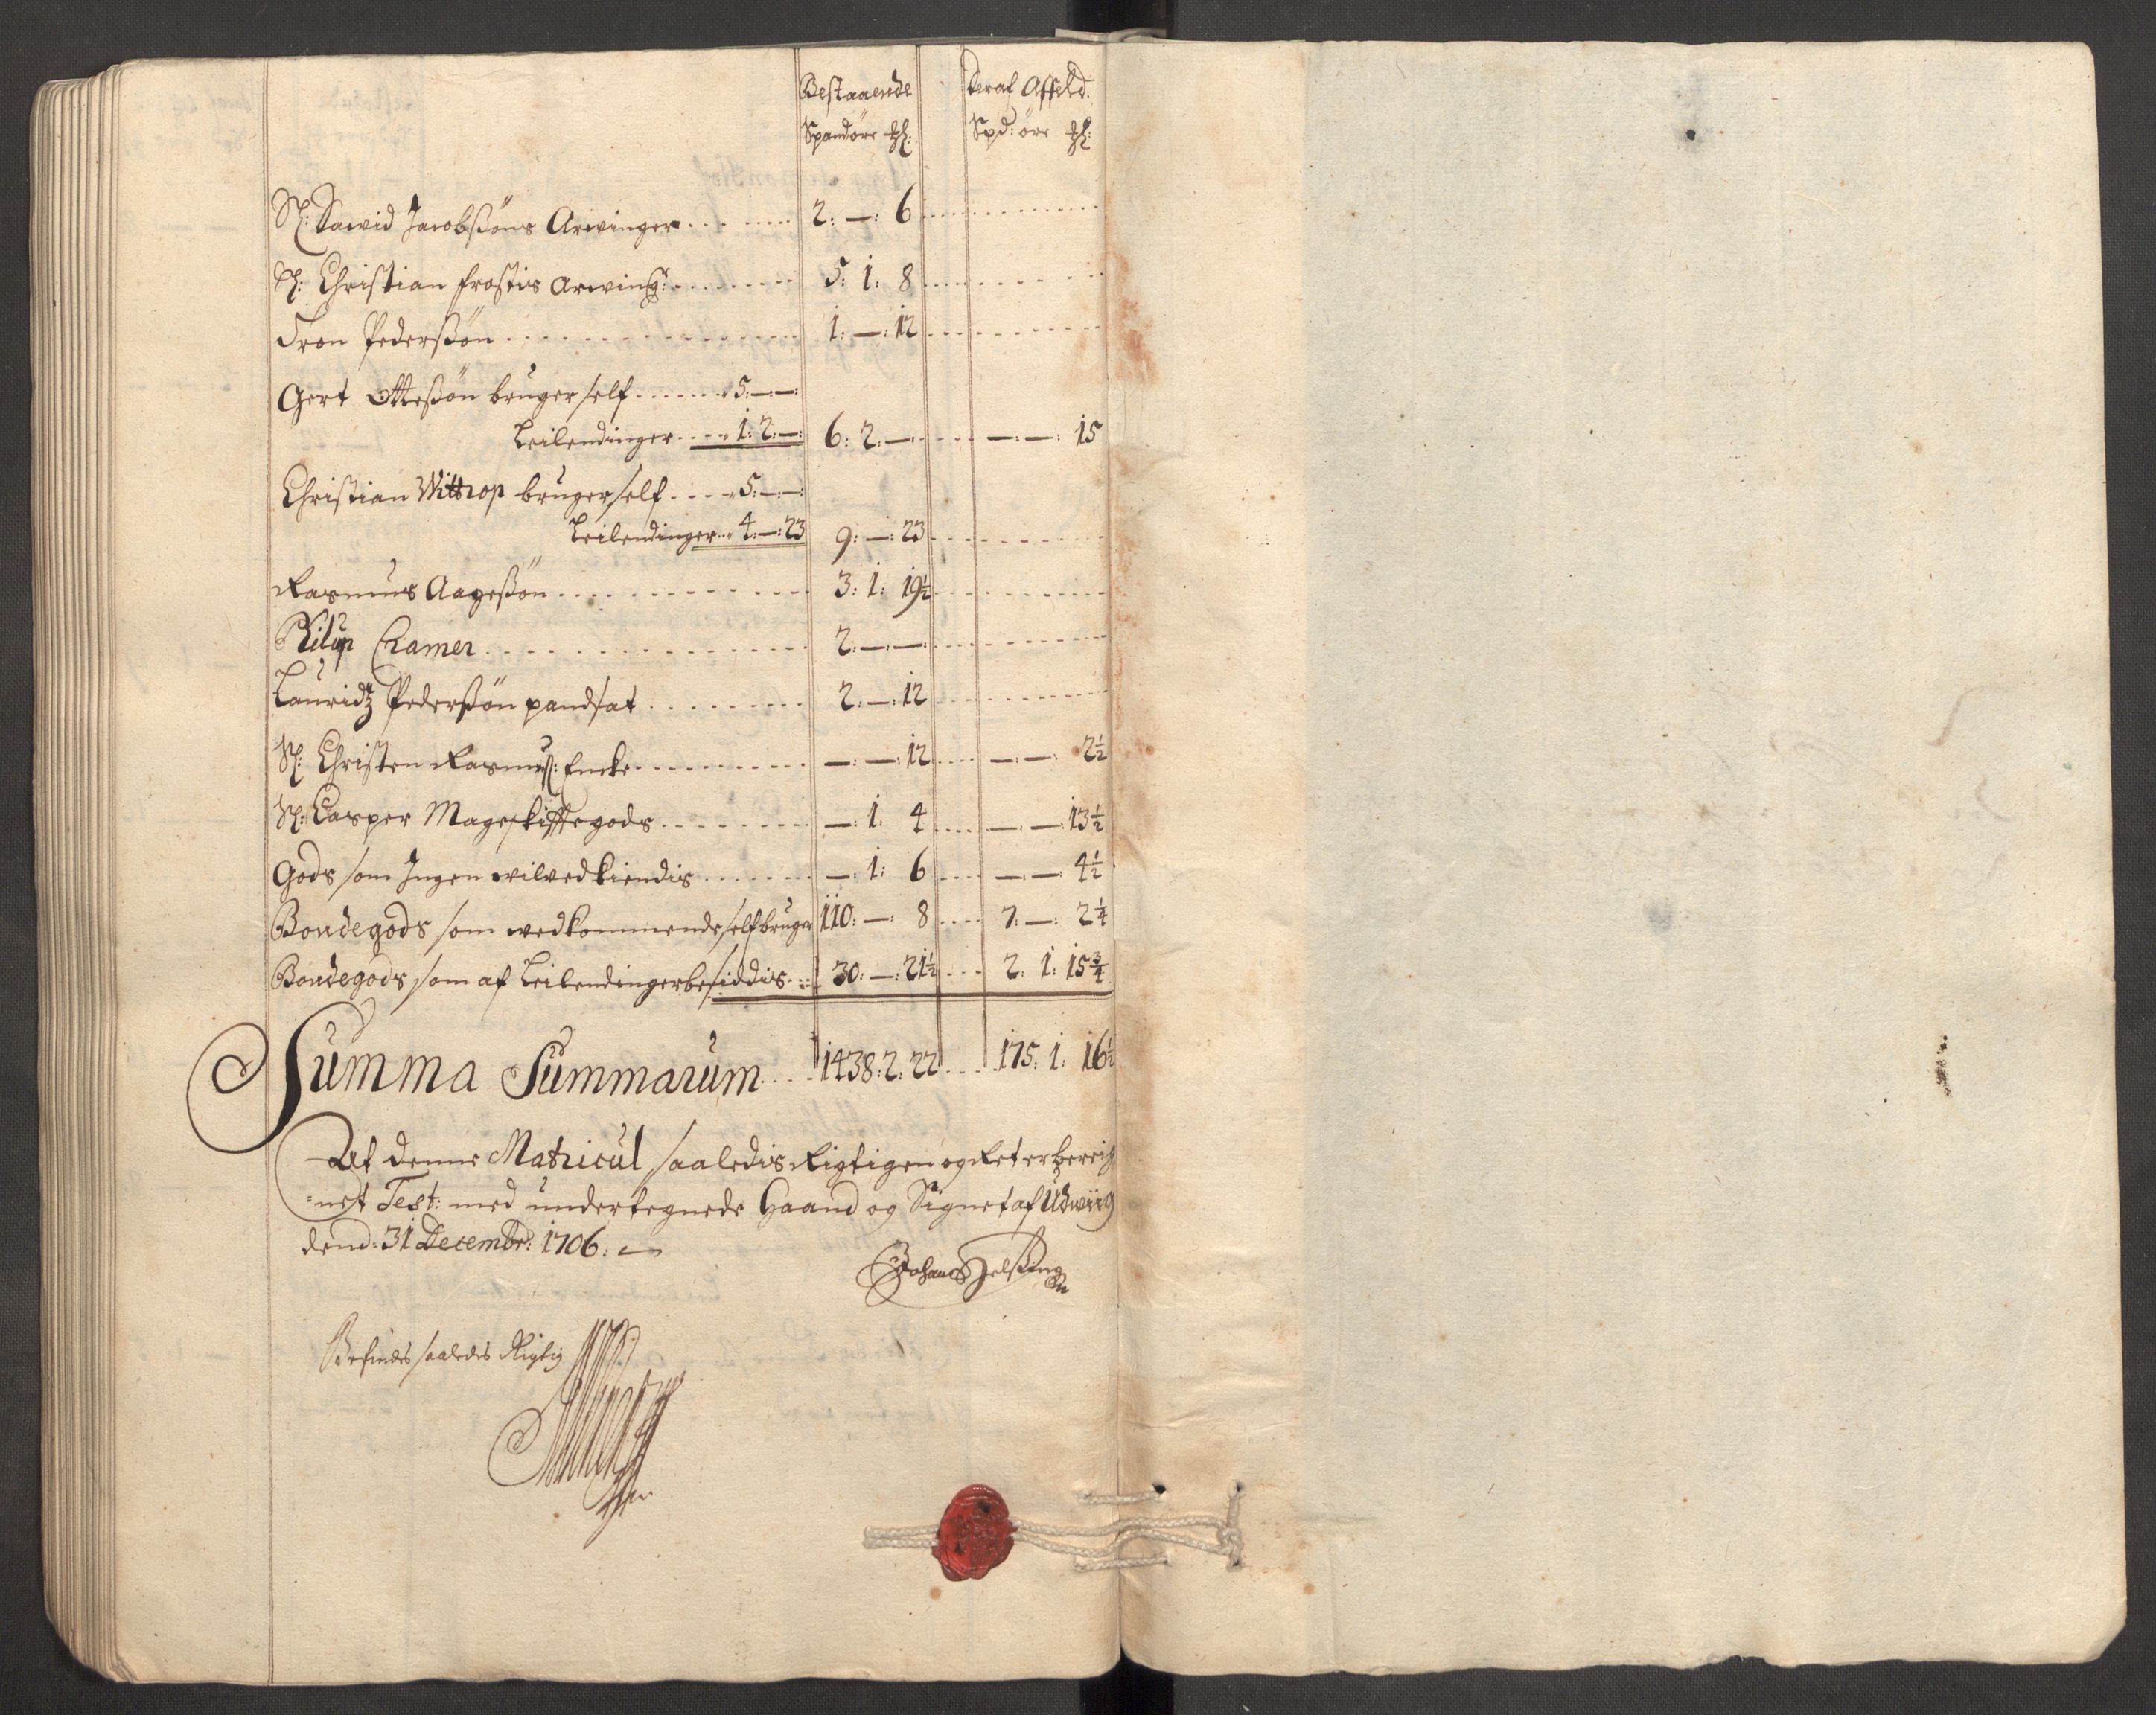 Bestaaende Deraf Affeld:
Spandöre Mkl: Spd: öre Mkl:
Sl: Dawid Jacobßöns Arwinger 2: —: 6
Sl: Christian frostis Arwing: 5: 1: 8
Tron Pederßön 1: —: 12
Gert Otteßön bruger self 5: —: —:
Leilendinger 1: 2: —: 6: 2: — —: —: 15
Christian Wittrop bruger self 5: —: —:
Leilendinger 4: —: 23 9: —: 23
Rasmus Aageßön 3: 1: 19½
Philip Cramer 2: —: —:
Lauridtz Pederßön pandsat 2: —: 12
Sl: Christen Rasmus: Encke —: —: 12 —: —: 2½
Sl: Casper Mageskifftegods —: 1: 4 —: —: 13½
Gods som Ingen wil vedkiendis —: 1: 6 —: —: 4½
Bondegods som wedkommende self bruger 110: —: 8 7: —: 2¼
Bondegods som af Leilendinger besiddis 30: —: 21½ 2: 1: 15¾
Summa Summarum 1438: 2: 22 175: 1: 16½
At denne Matricul saaledis Rigtigen og Ret er bereig
=net Test: med undertegnede Haand og Signet af Udwiig
dend: 31 Decembr: 1706:
Befindes saaledes Rigtig